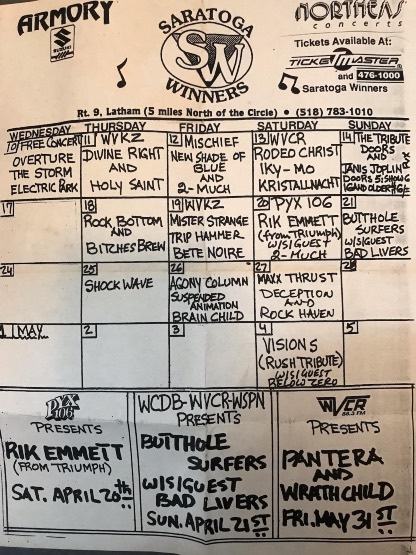 ARMORY
SUZUKI
SARATOGA
SW
WINNERS
NORTHEAST
concerts
Tickets Available At:
TICKETMASTER
and 476-1000
Saratoga Winners
Rt. 9, Latham (5 miles North of the Circle) • (518) 783-1010
WEDNESDAY THURSDAY FRIDAY SATURDAY SUNDAY
10 FREE CONCERT
OVERTURE
THE STORM
ELECTRIC PARK
11 WVKZ
DIVINE RIGHT
AND
HOLY SAINT
12 MISCHIEF
NEW SHADE OF
BLUE
AND
2-MUCH
13 WVCR
RODEO CHRIST
IKY-MO
KRISTALLNACHT
14 THE TRIBUTE
DOORS
AND
JANIS JOPLIN
DOORS 5; SHOW 6
16 AND OLDER $6
17
18
ROCK BOTTOM
AND
BITCHES BREW
19 WVKZ
MISTER STRANGE
TRIP HAMMER
BETE NOIRE
20 PYX 106
RIK EMMETT
(from TRIUMPH)
W/S/GUEST
2-MUCH
21
BUTTHOLE
SURFERS
W/S/GUEST
BAD LIVERS
24
25
SHOCK WAVE
26
AGONY COLUMN
SUSPENDED
ANIMATION
BRAIN CHILD
27
MAXX THRUST
DECEPTION
AND
ROCK HAVEN
28
1 MAY
2
3
4
VISIONS
(RUSH TRIBUTE)
W/S/GUEST
BELOW ZERO
5
PYX
106
PRESENTS
RIK EMMETT
(FROM TRIUMPH)
SAT. APRIL 20th
WCDB-WVCR-WSPN
PRESENTS
BUTTHOLE
SURFERS
W/S/GUEST
BAD LIVERS
SUN. APRIL 21ST
WVCR
88.3 FM
PRESENTS
PANTERA
AND
WRATHCHILD
FRI. MAY 31ST